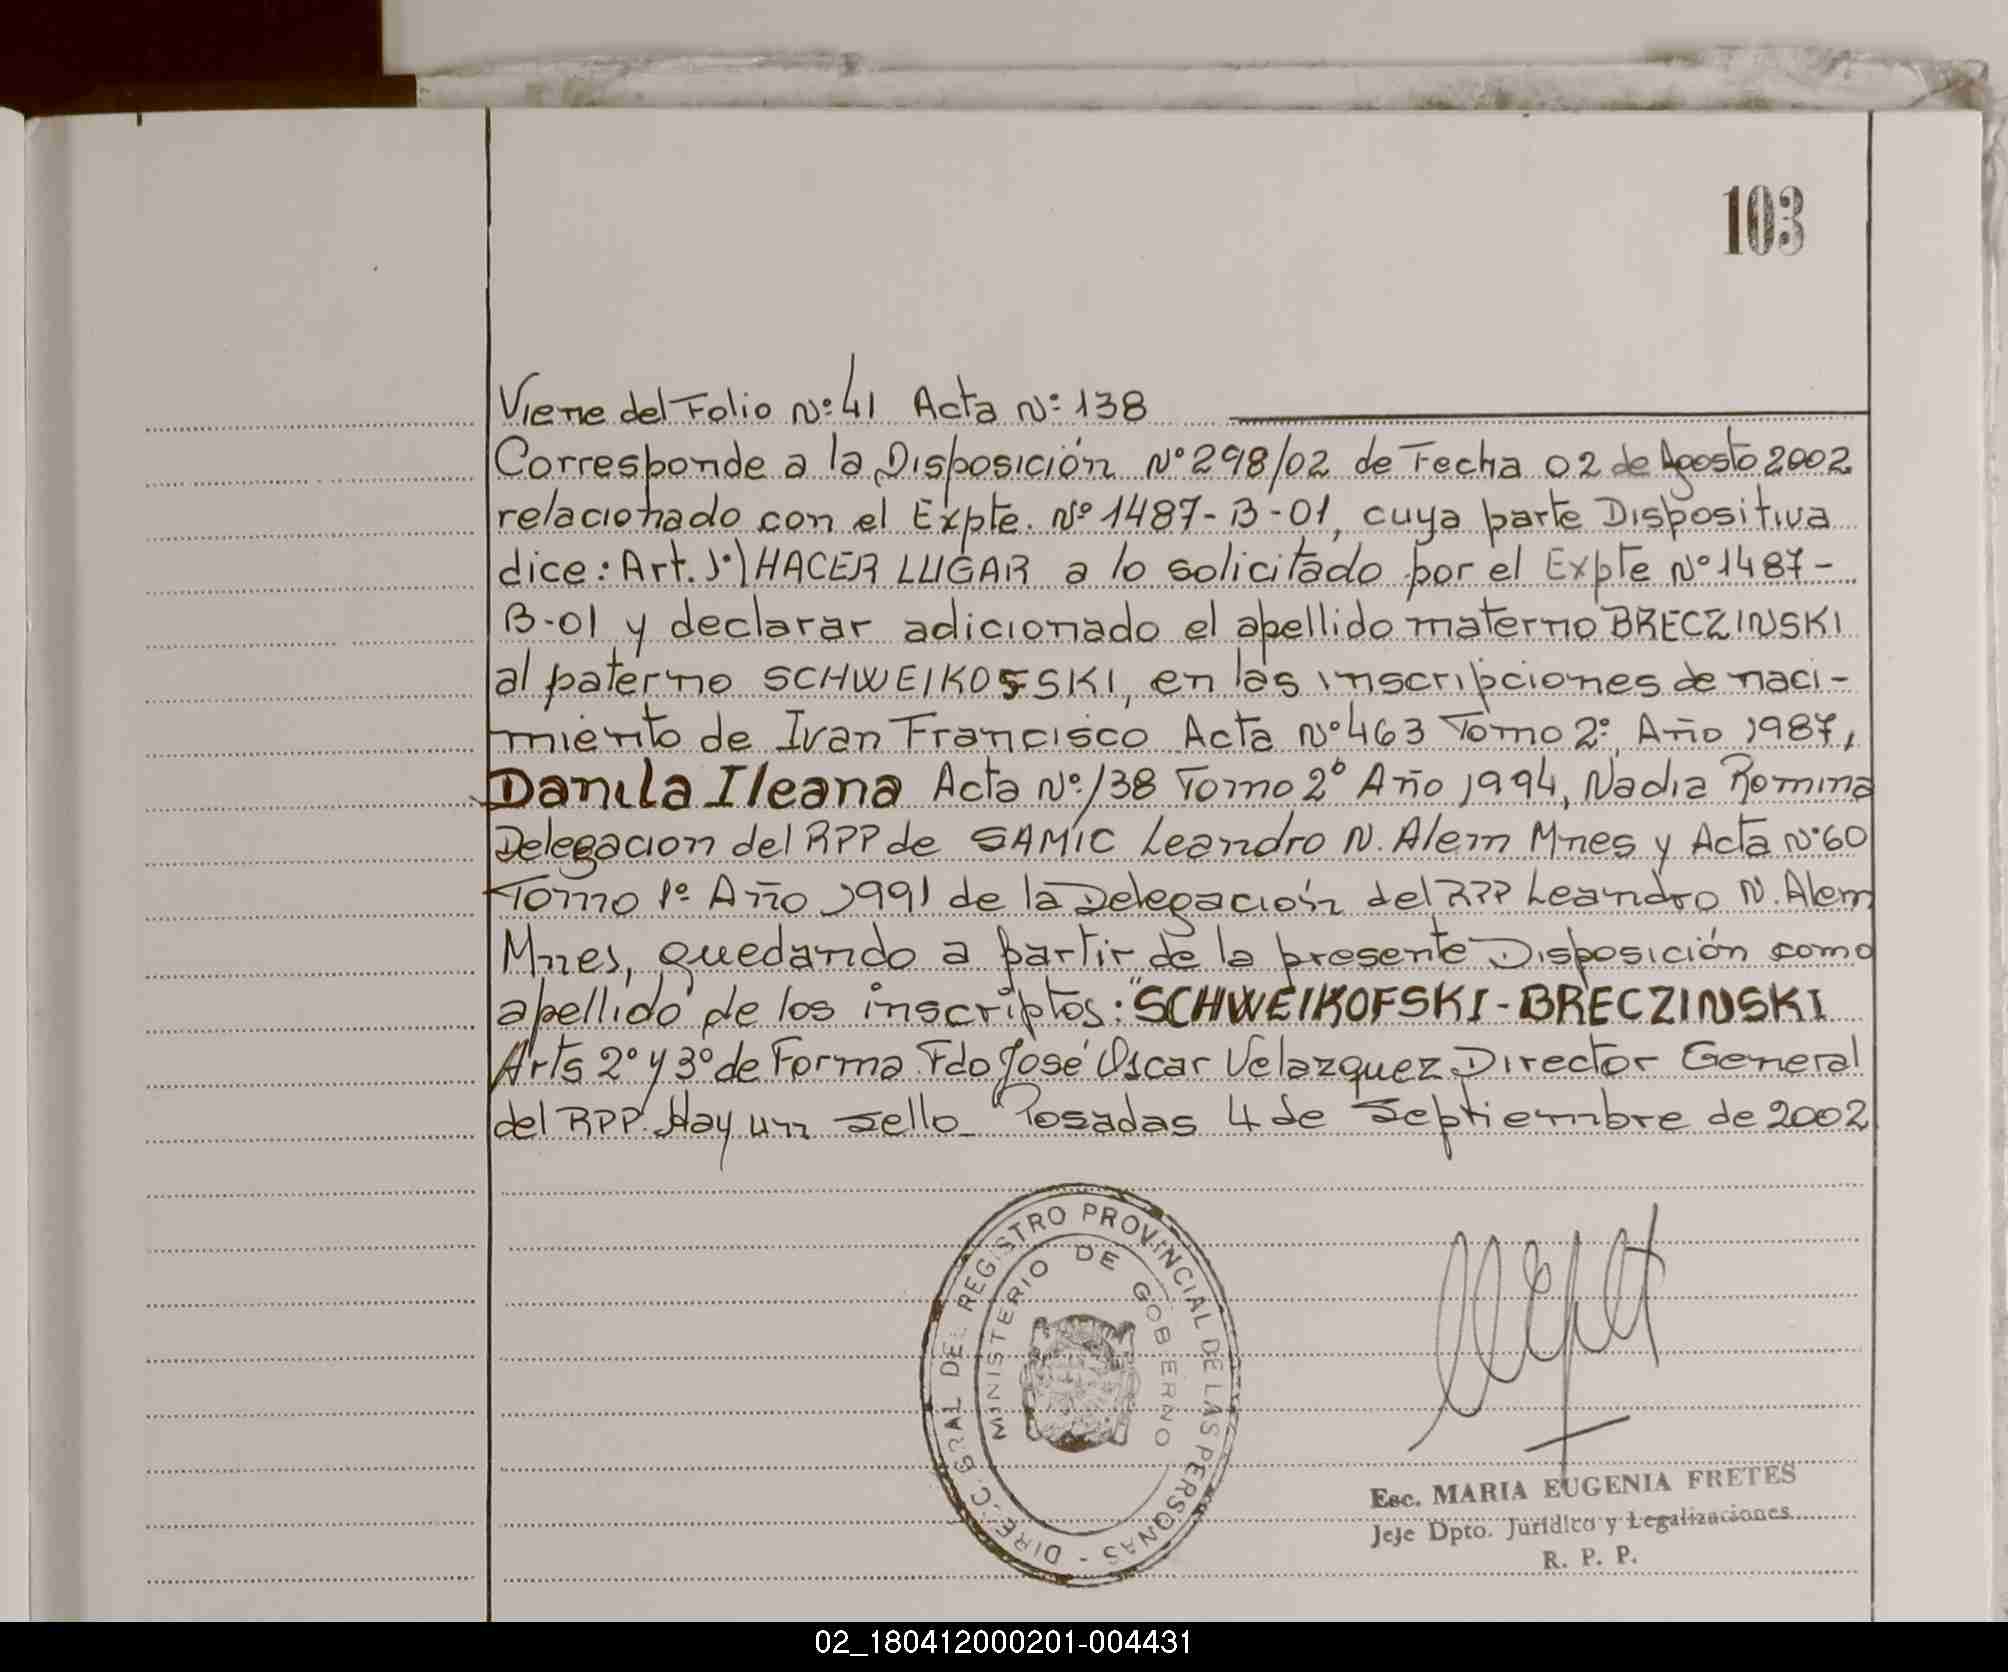 103
Viene del Folio Nº 41 Acta Nº 138
Corresponde a la Disposición Nº 298/02 de Fecha 02 de Agosto 2002
relacionado con el Expte. Nº 1487-B-01, cuya parte Dispositiva
dice: Art. 1º) HACER LUGAR a lo solicitado por el Expte Nº 1487-
B-01 y declarar adicionado el apellido materno BRECZINSKI
al paterno SCHWEIKOFSKI, en las inscripciones de naci-
miento de Ivan Francisco Acta Nº 463 Tomo 2º, Año 1987,
Danila Ileana Acta Nº 138 Tomo 2º Año 1994, Nadia Romina
Delegacion del RPP de SAMIC Leandro N. Alem Mnes y Acta Nº 60
Tomo 1º Año 1991 de la Delegación del RPP Leandro N. Alem
Mnes, quedando a partir de la presente Disposición como
apellido de los inscriptos: "SCHWEIKOFSKI-BRECZINSKI
Arts 2º y 3º de Forma Fdo José Oscar Velazquez Director General
del RPP. Hay un sello Posadas 4 de Septiembre de 2002
DIREC. GRAL DEL REGISTRO PROVINCIAL DE LAS PERSONAS -
MINISTERIO DE GOBIERNO
Esc. MARIA EUGENIA FRETES
Jefe Dpto. Jurídico y Legalizaciones
R. P. P.
02_180412000201-004431